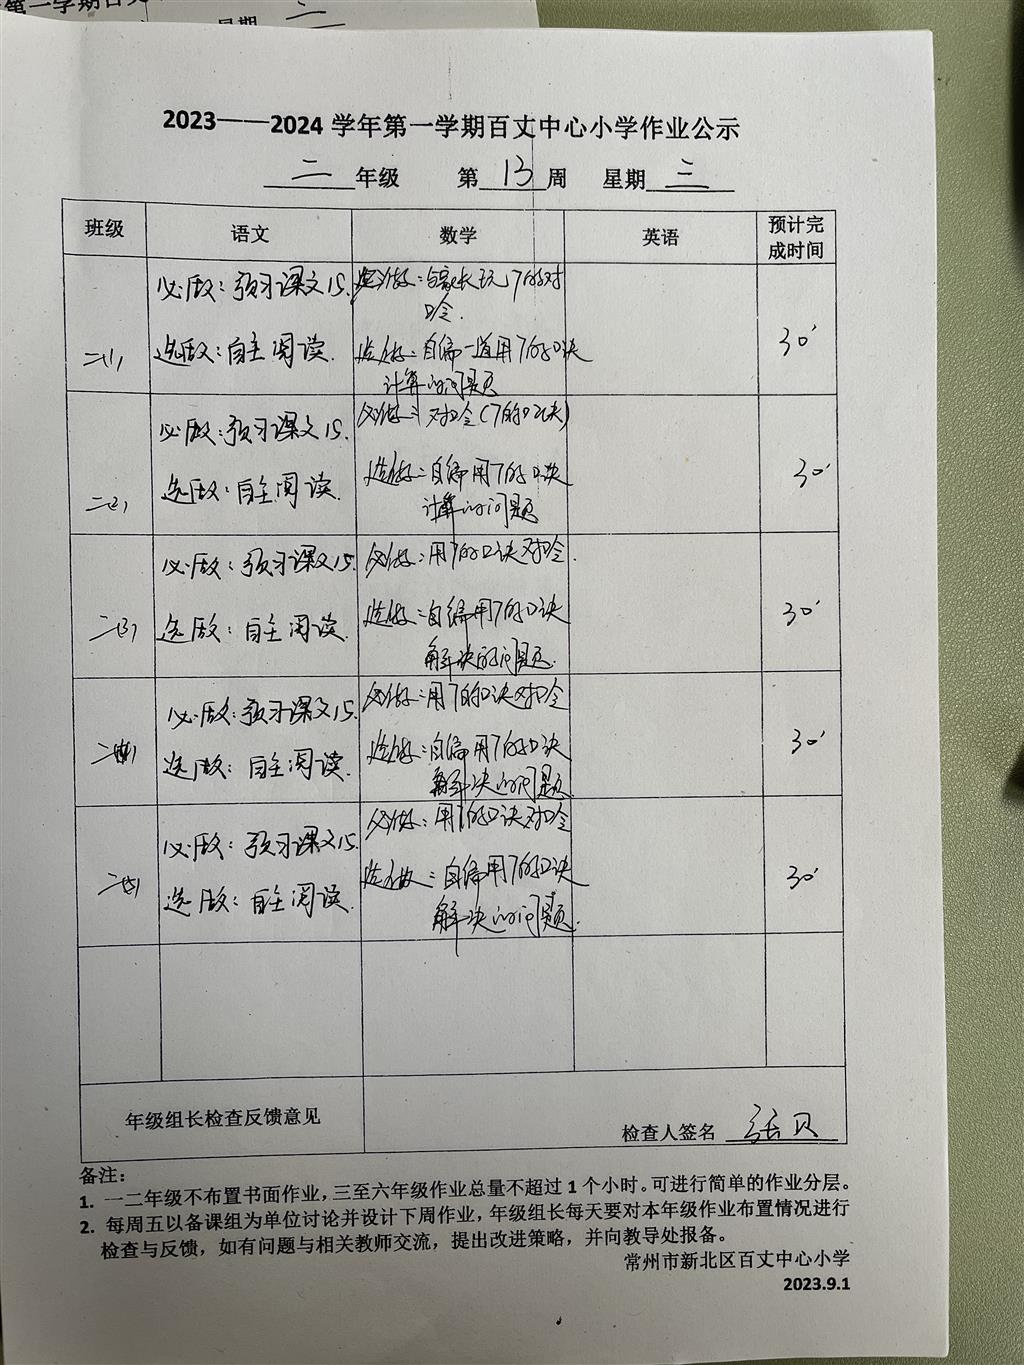 第一学期百丈
星期 三
2023——2024 学年第一学期百丈中心小学作业公示
二 年级 第 13 周 星期 三
班级 语文 数学 英语 预计完成时间
二(1)
必做：预习课文15.
选做：自主阅读.
必做：与家长玩7的对
口令.
选做：自编一道用7的口诀
计算的问题
30'
二(2)
必做：预习课文15.
选做：自主阅读.
必做：对口令(7的口诀)
选做：自编用7的口诀
计算的问题
30'
二(3)
必做：预习课文15.
选做：自主阅读.
必做：用7的口诀对口令.
选做：自编用7的口诀
解决的问题.
30'
二(4)
必做：预习课文15.
选做：自主阅读.
必做：用7的口诀对口令
选做：自编用7的口诀
解决的问题
30'
二(5)
必做：预习课文15.
选做：自主阅读.
必做：用7的口诀对口令
选做：自编用7的口诀
解决的问题.
30'
年级组长检查反馈意见
检查人签名 张贝
备注：
1. 一二年级不布置书面作业，三至六年级作业总量不超过 1 个小时。可进行简单的作业分层。
2. 每周五以备课组为单位讨论并设计下周作业，年级组长每天要对本年级作业布置情况进行
检查与反馈，如有问题与相关教师交流，提出改进策略，并向教导处报备。
常州市新北区百丈中心小学
2023.9.1